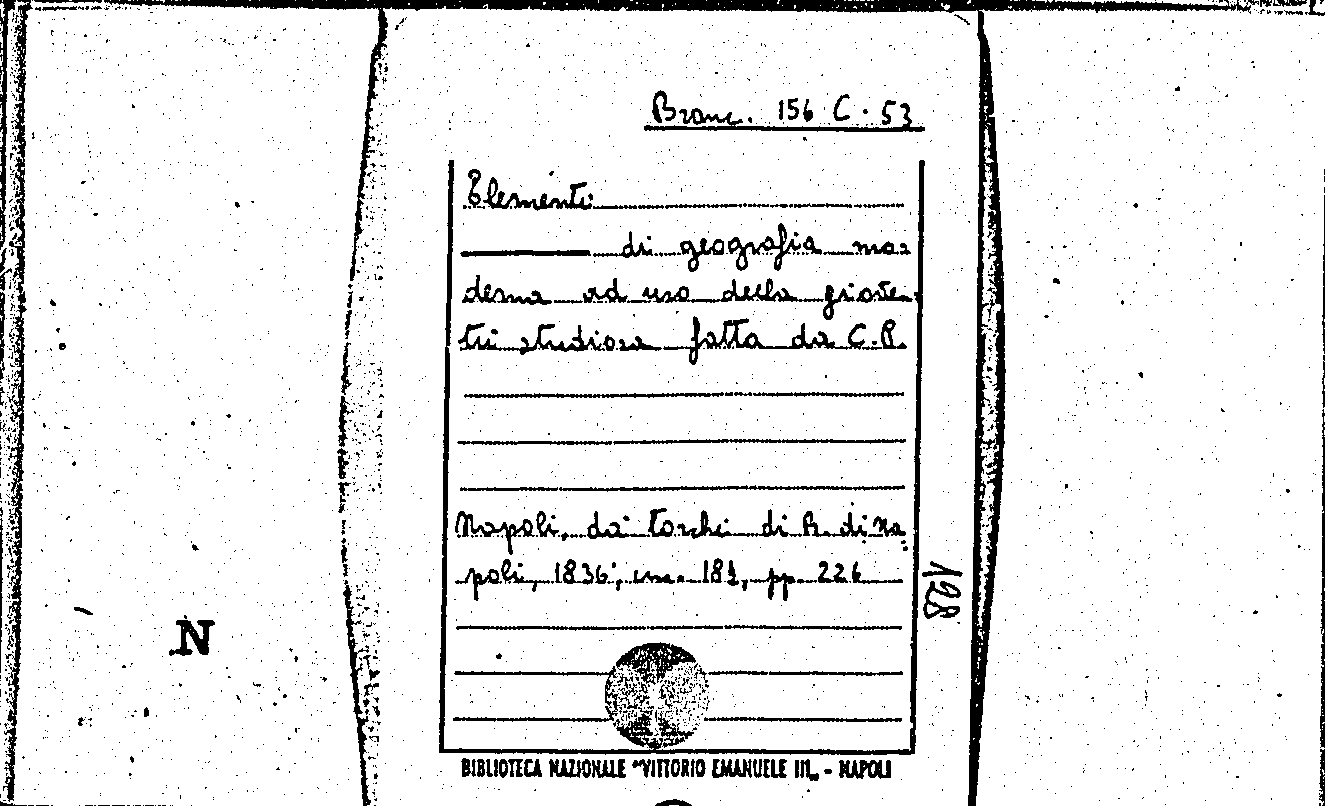 Branc. 156 C. 53
Elementi
di geografia mo=
derna ad uso della gioven=
tù studiosa fatta da C.R.
Napoli, da' torchi di R. di Na=
poli, 1836; cm. 18½, pp. 226
198
N
BIBLIOTECA NAZIONALE "VITTORIO EMANUELE III„ - NAPOLI